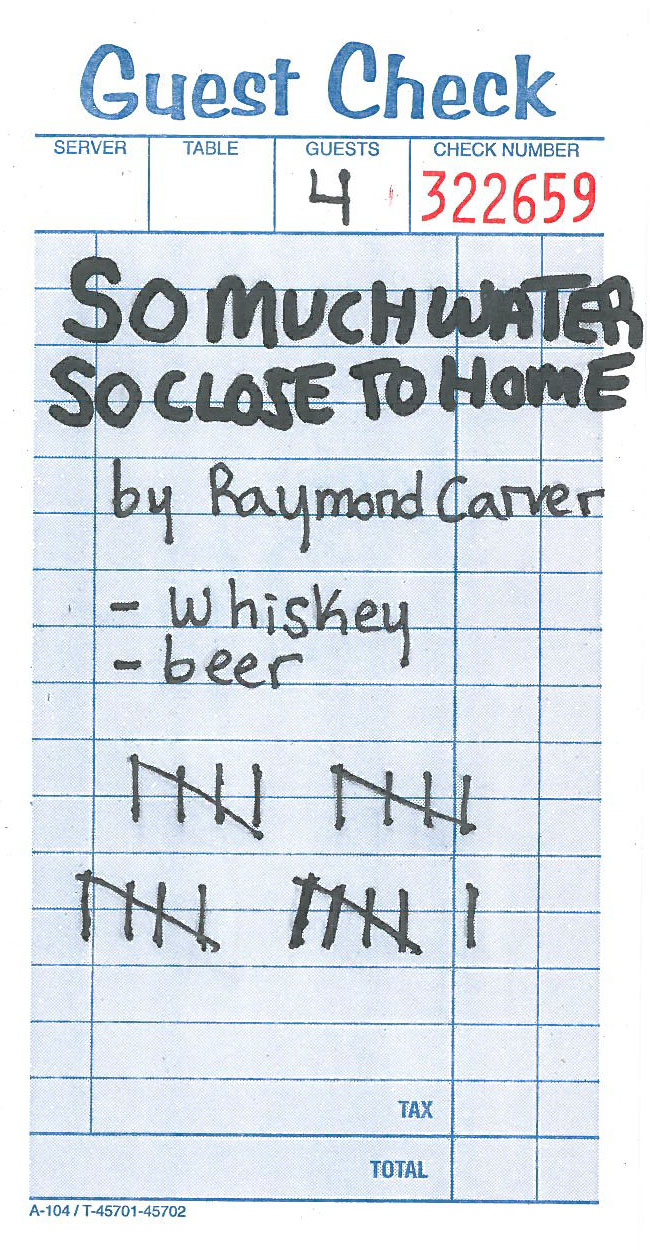 Guest Check
SERVER TABLE GUESTS CHECK NUMBER
4 322659
SO MUCH WATER
SO CLOSE TO HOME
by Raymond Carver
- Whiskey
- beer
TAX
TOTAL
A-104 / T-45701-45702